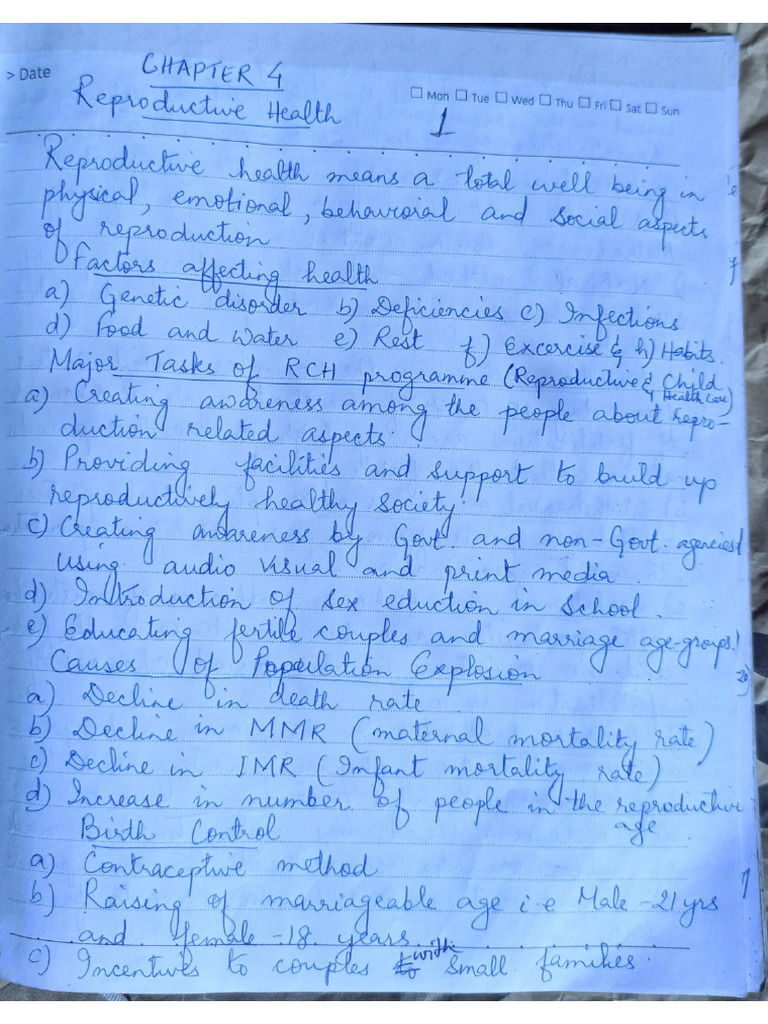 > Date
CHAPTER 4
Reproductive Health
Mon Tue Wed Thu Fri Sat Sun
1
Reproductive health means a total well being in
physical, emotional, behavioral and social aspects
of reproduction
Factors affecting health
a) Genetic disorder b) Deficiencies c) Infections
d) Food and Water e) Rest f) Excercise & h) Habits.
Major Tasks of RCH programme (Reproductive & Child
Health Care)
a) Creating awareness among the people about repro-
duction related aspects.
b) Providing facilities and support to build up
reproductively healthy society.
c) Creating awareness by Govt. and non-Govt. agencies
using audio visual and print media
d) Introduction of sex eduction in School.
e) Educating fertile couples and marriage age-groups.
Causes of Population Explosion
a) Decline in death rate
b) Decline in MMR (maternal mortality rate)
c) Decline in IMR (Infant mortality rate)
d) Increase in number of people in the reproductive
age
Birth Control
a) Contraceptive method
b) Raising of marriageable age i.e Male - 21 yrs
and female - 18 years.
c) Incentives to couples with small families.